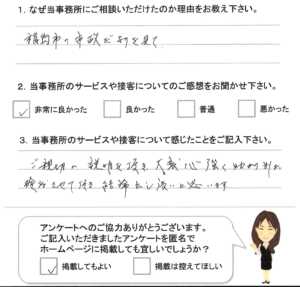 1. なぜ当事務所にご相談いただけたのか理由をお教え下さい。
を見て
2. 当事務所のサービスや接客についてのご感想をお聞かせ下さい。
✓ 非常に良かった 良かった 普通 悪かった
3. 当事務所のサービスや接客について感じたことをご記入下さい。
ご親切な説明を頂き大変心強く
思います
アンケートへのご協力ありがとうございます。
ご記入いただきましたアンケートを匿名で
ホームページに掲載しても宜しいでしょうか?
✓ 掲載してもよい 掲載は控えてほしい